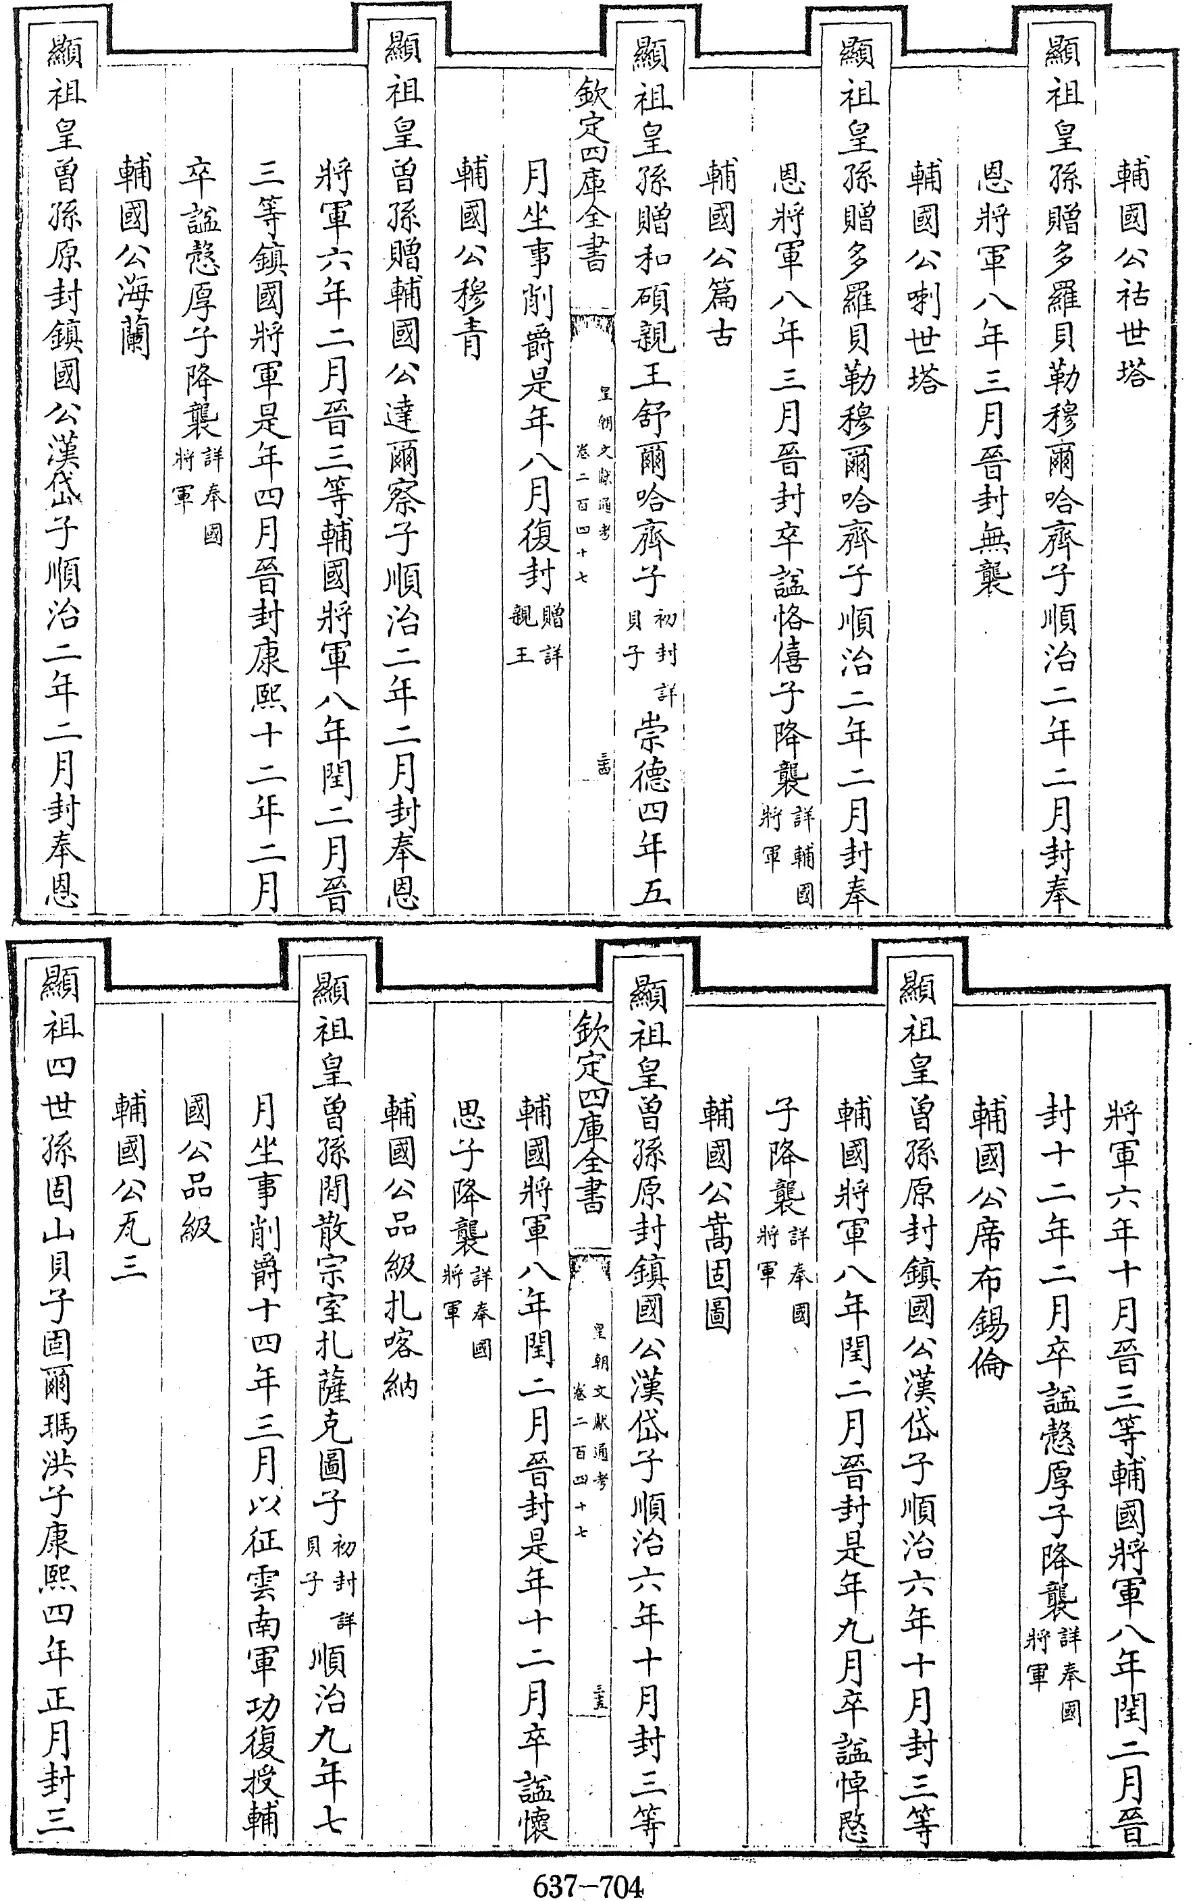 輔國公祜世塔
顯祖皇孫贈多羅貝勒穆爾哈齊子順治二年二月封奉
恩將軍八年三月晉封無襲
輔國公喇世塔
顯祖皇孫贈多羅貝勒穆爾哈齊子順治二年二月封奉
恩將軍八年三月晉封卒諡恪僖子降襲詳輔國將軍
輔國公篇古
顯祖皇孫贈和碩親王舒爾哈齊子初封詳貝子崇德四年五
欽定四庫全書 皇朝文獻通考 卷二百四十七 三十四
月坐事削爵是年八月復封贈詳親王
輔國公穆青
顯祖皇曾孫贈輔國公達爾察子順治二年二月封奉恩
將軍六年二月晉三等輔國將軍八年閏二月晉
三等鎮國將軍是年四月晉封康熙十二年二月
卒諡慤厚子降襲詳奉國將軍
輔國公海蘭
顯祖皇曾孫原封鎮國公漢岱子順治二年二月封奉恩
將軍六年十月晉三等輔國將軍八年閏二月晉
封十二年二月卒諡慤厚子降襲詳奉國將軍
輔國公席布錫倫
顯祖皇曾孫原封鎮國公漢岱子順治六年十月封三等
輔國將軍八年閏二月晉封是年九月卒諡悼愍
子降襲詳奉國將軍
輔國公嵩固圖
顯祖皇曾孫原封鎮國公漢岱子順治六年十月封三等
欽定四庫全書 皇朝文獻通考 卷二百四十七 三十五
輔國將軍八年閏二月晉封是年十二月卒諡懷
思子降襲詳奉國將軍
輔國公品級扎喀納
顯祖皇曾孫閒散宗室扎薩克圖子初封詳貝子順治九年七
月坐事削爵十四年三月以征雲南軍功復授輔
國公品級
輔國公瓦三
顯祖四世孫固山貝子固爾瑪洪子康熙四年正月封三
637-704